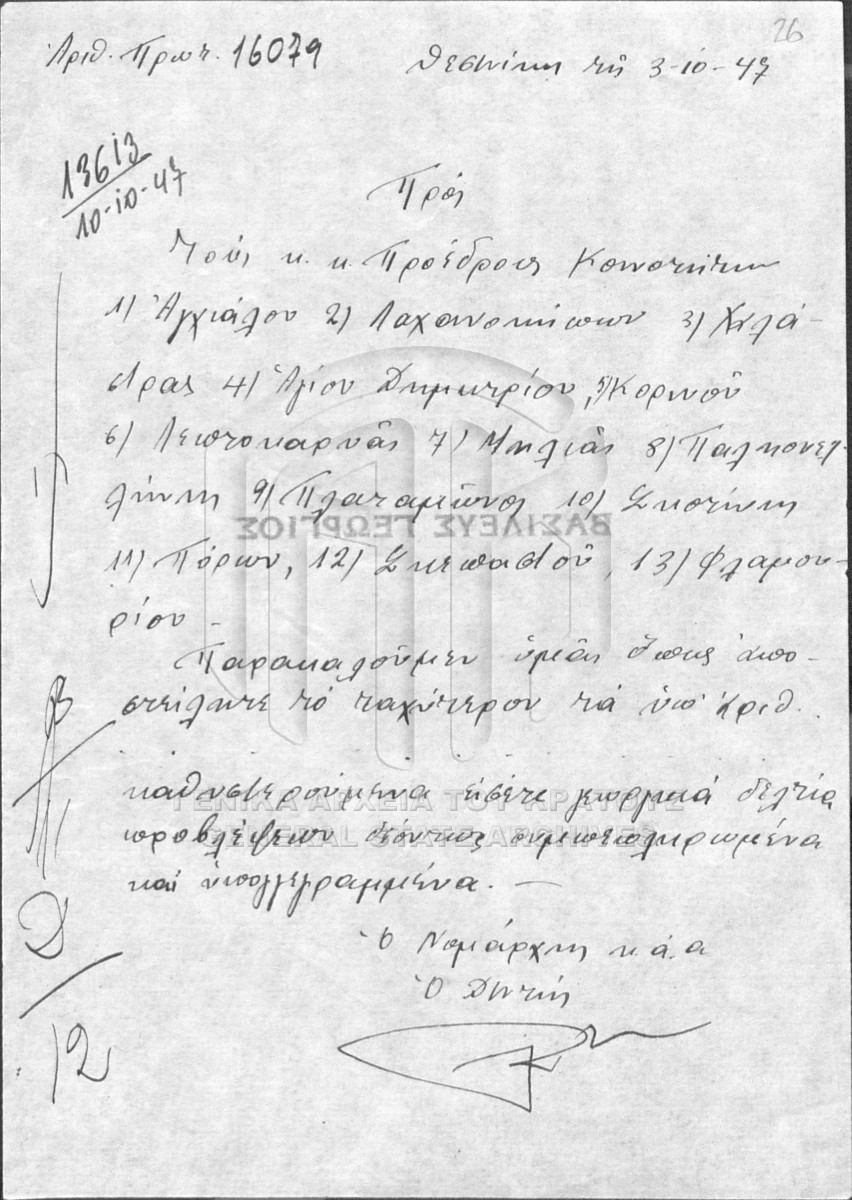 26
Ἀριθ. Πρωτ. 16079
Θεσ)νίκη τῇ 3-10-47
13613
10-10-47
Πρός
Τούς κ. κ. Προέδρους Κοινοτήτων
1) Ἀγχιάλου 2) Λαχανοκήπων 3) Χαλά-
στρας 4) Ἁγίου Δημητρίου, 5) Κορινοῦ
6) Λεπτοκαρυᾶς 7) Μηλιᾶς 8) Παλ
9) Πλαταμῶνος 10)
11) Πόρων, 12) Σκεπαστοῦ, 13) Φλαμου-
ρίου -
Παρακαλοῦμεν ὑμᾶς ὅπως ἀπο-
στείλητε τό ταχύτερον τά ὑπ' ἀριθ.
καθυστερούμενα εἰσέτι γεωργικά δελτία
προβλέψεων δεόντως συμπεπληρωμένα
καί ὑπογεγραμμένα. —
Ὁ Νομάρχης κ.ἀ.α
Ὁ Δ)ντής
Δ
12
ΒΑΣΙΛΕΥΣ ΓΕΩΡΓΙΟΣ
ΓΕΝΙΚΑ ΑΡΧΕΙΑ ΤΟΥ ΚΡΑΤΟΥΣ
GENERAL STATE ARCHIVES